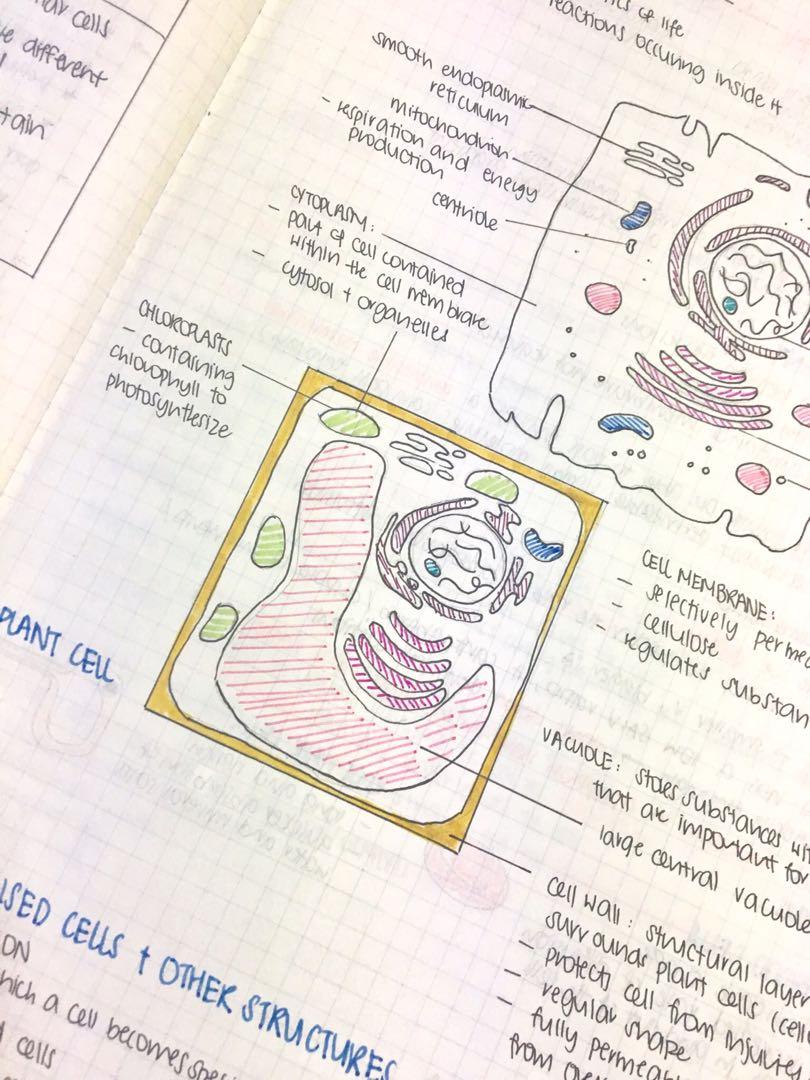 cells
different
tain
of life
reactions occuring inside it
smooth endoplasmic
reticulum
mitochondrion
- respiration and energy
production
centriole
CYTOPLASM:
- part of cell contained
within the cell membrane
- cytosol + organelles
CHLOROPLASTS
- containing
chlorophyll to
photosynthesize
PLANT CELL
CELL MEMBRANE:
- selectively permea
- cellulose
- regulates substan
VACUOLE: stores substances wit
that are important for
large central vacuole
cell wall: structural layer
surrounds plant cells (cell
- protects cell from injuries
- regular shape
- fully permeabl
from over
ISED CELLS + OTHER STRUCTURES
ON
hich a cell becomes speci
cells